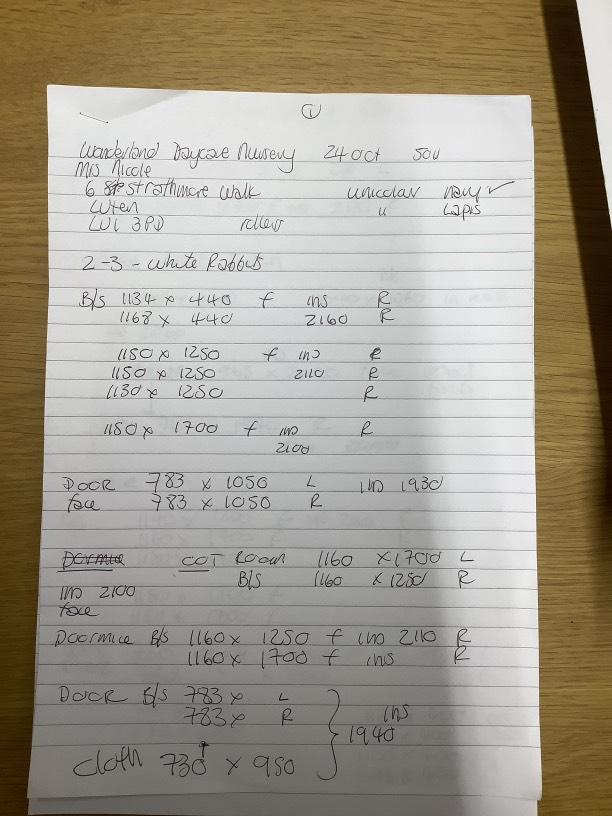 1
Wonderland Daycare Nursery 24 Oct
Mrs Nicole
6 Strathmore Walk unicolour navy ✓
Luton " Lapis
LU1 3PD rollers
2-3 - White Rabbits
B/S 1134 x 440 f ins R
1168 x 440 2160 R
1150 x 1250 f ins R
1150 x 1250 2110 R
1130 x 1250 R
1150 x 1700 f ins R
2100
DOOR 783 x 1050 L ins 1930
face 783 x 1050 R
Dormice COT Room 1160 x 1700 L
B/S 1160 x 1250 R
ins 2100
face
Doormice B/S 1160 x 1250 f ins 2110 R
1160 x 1700 f ins R
DOOR B/S 783 x L
783 x R ins
1940
cloth 730 x 950